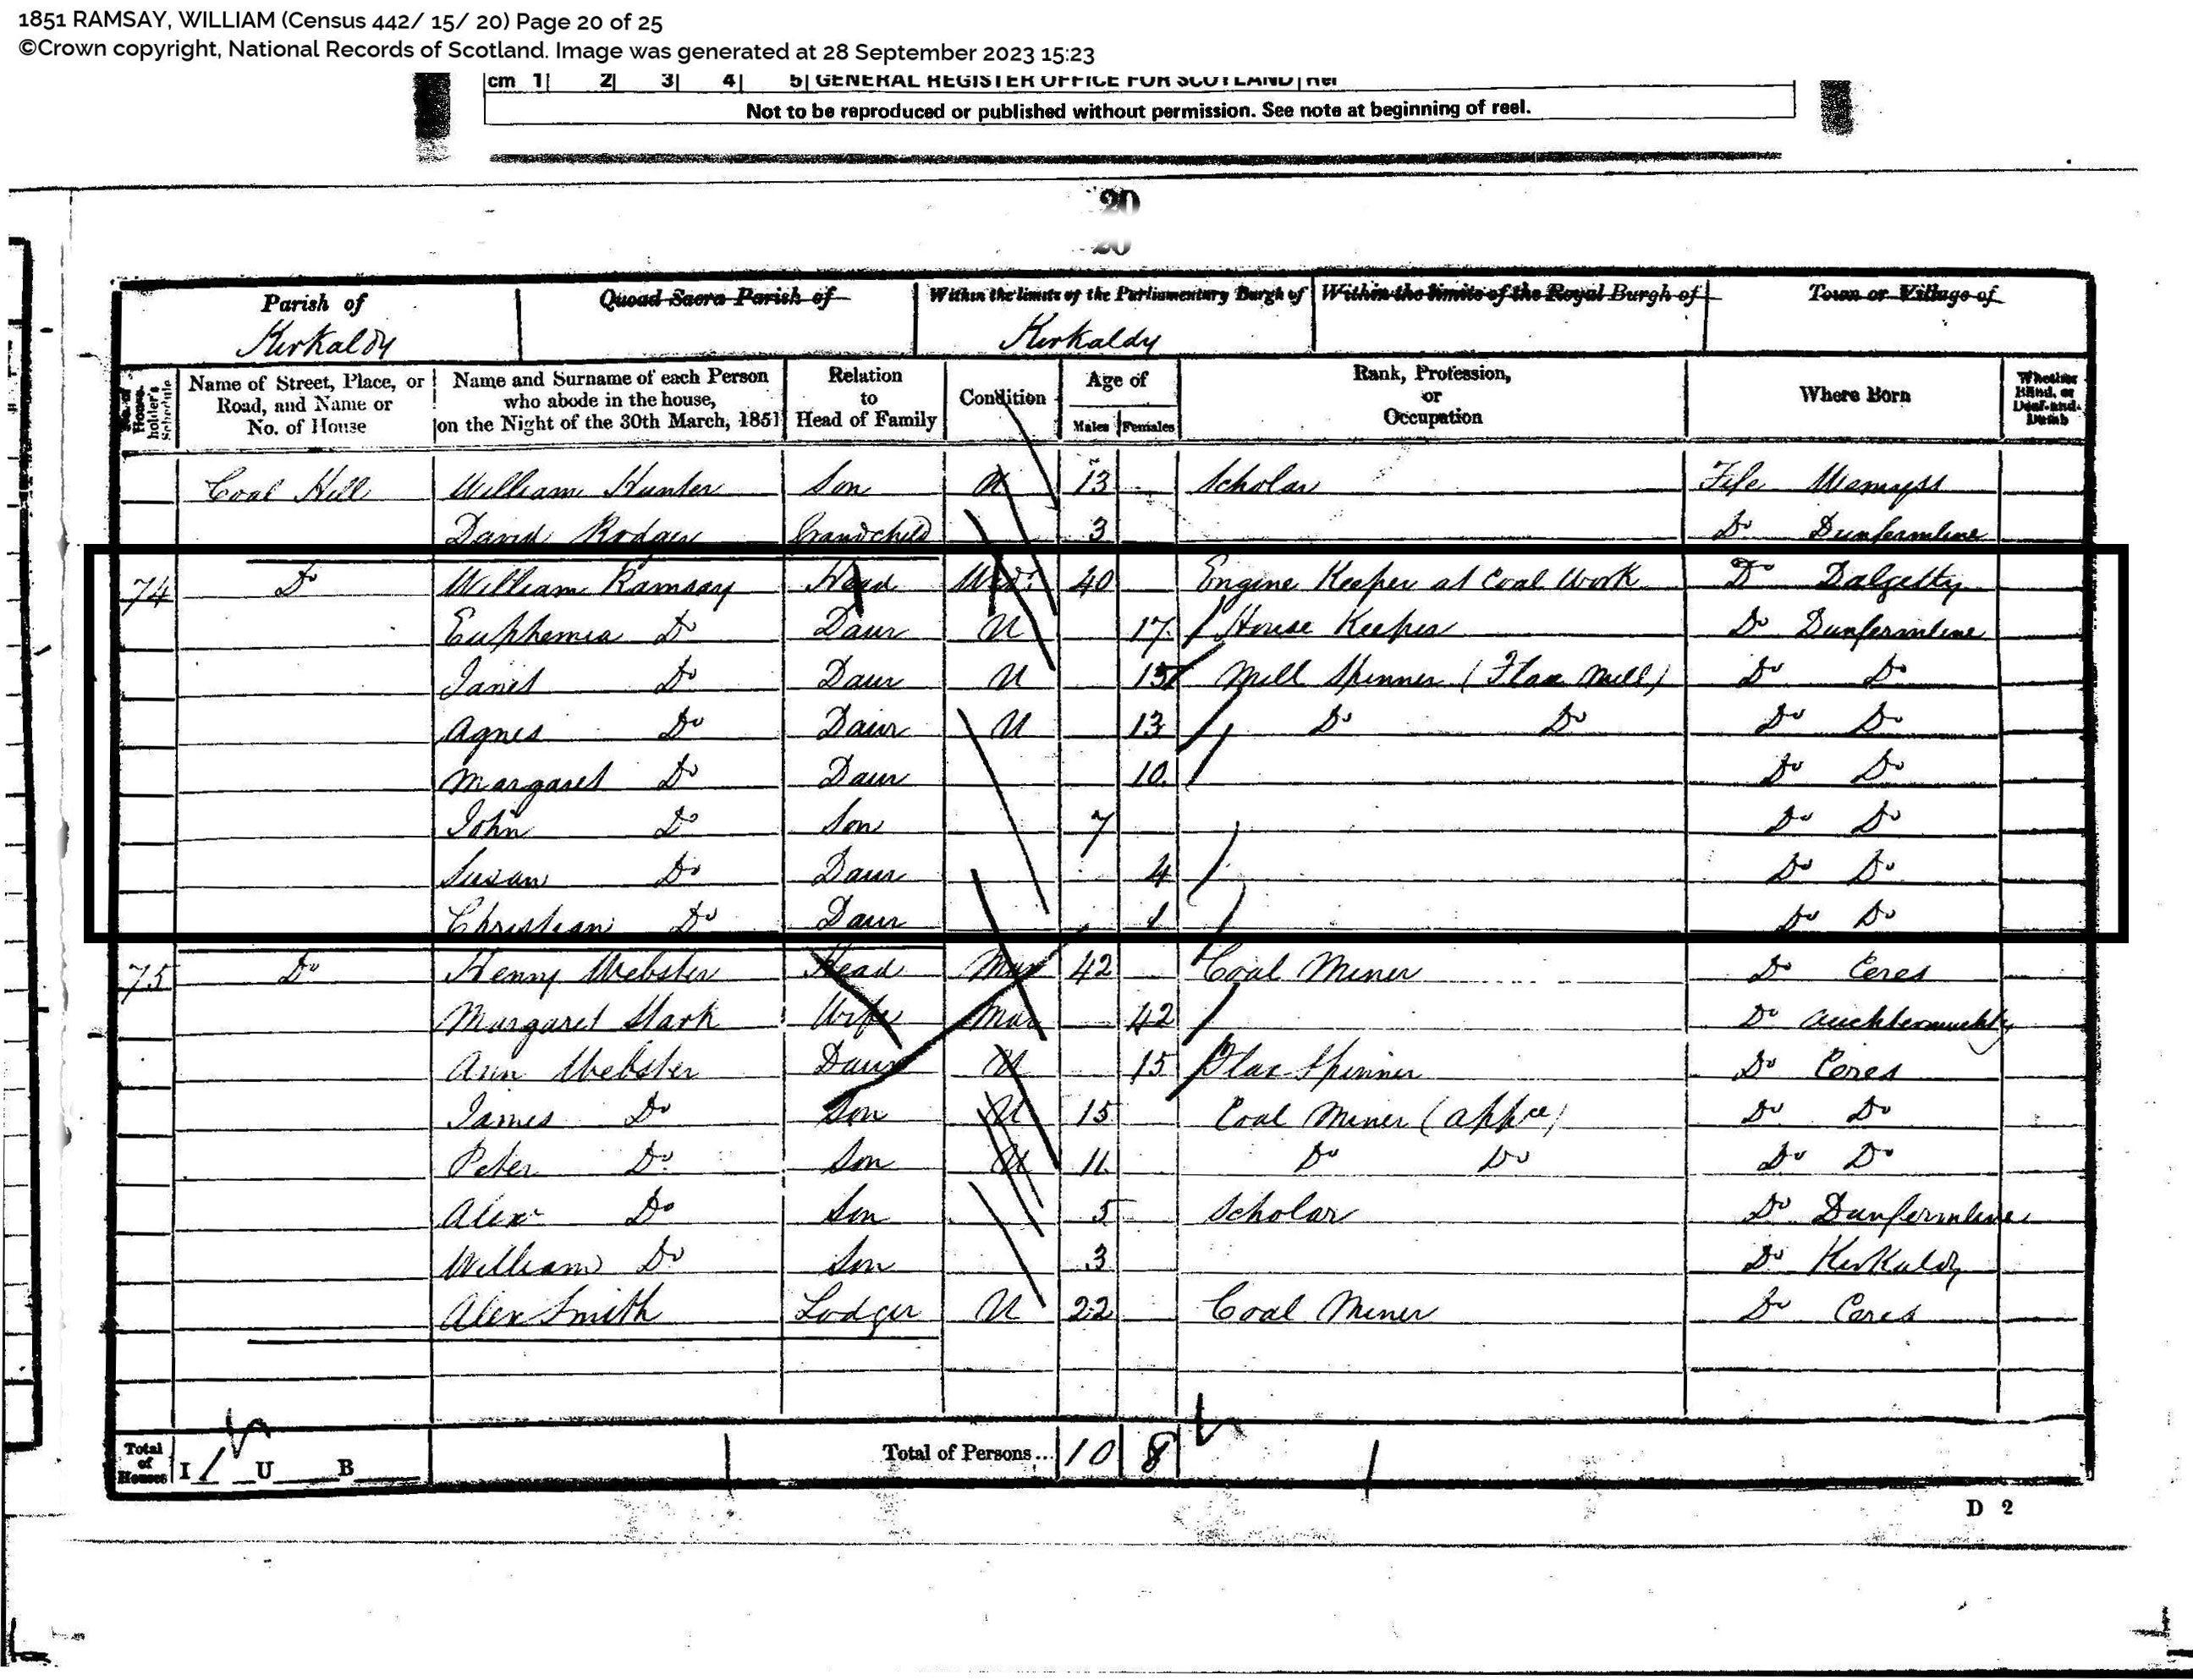 1851 RAMSAY, WILLIAM (Census 442/ 15/ 20) Page 20 of 25
©Crown copyright, National Records of Scotland. Image was generated at 28 September 2023 15:23
cm 1 2 3 4 5 GENERAL REGISTER OFFICE FOR SCOTLAND Ref
Not to be reproduced or published without permission. See note at beginning of reel.
20
20
Parish of Quoad Sacra Parish of Within the limits of the Parliamentary Burgh of Within the limits of the Royal Burgh of Town or Village of
Kirkaldy Kirkaldy
No. of House-holder's Schedule Name of Street, Place, or Road, and Name or No. of House Name and Surname of each Person who abode in the house, on the Night of the 30th March, 1851 Relation to Head of Family Condition Age of Males Females Rank, Profession, or Occupation Where Born Whether Blind, or Deaf-and-Dumb
Coal Hill William Hunter Son U 13 Scholar Fife Wemyss
David Rodger Grandchild 3 Do Dunfermline
74 Do William Ramsay Head Widr 40 Engine Keeper at Coal Work Do Dalgetty
Euphemia Do Daur U 17 House Keeper Do Dunfermline
Janet Do Daur U 15 Mill Spinner (Flax Mill) Do Do
Agnes Do Daur U 13 Do Do Do Do
Margaret Do Daur 10 Do Do
John Do Son 7 Do Do
Susan Do Daur 4 Do Do
Christian Do Daur 1 Do Do
75 Do Henry Webster Head Mar 42 Coal Miner Do Ceres
Margaret Stark Wife Mar 42 Do Auchtermuchty
Ann Webster Daur U 15 Flax Spinner Do Ceres
James Do Son U 15 Coal Miner (appce) Do Do
Peter Do Son U 11 Do Do Do Do
Alexr Do Son 5 Scholar Do Dunfermline
William Do Son 3 Do Kirkaldy
Alex Smith Lodger U 22 Coal Miner Do Ceres
Total of Houses I 1 U B Total of Persons... 10 8
D 2